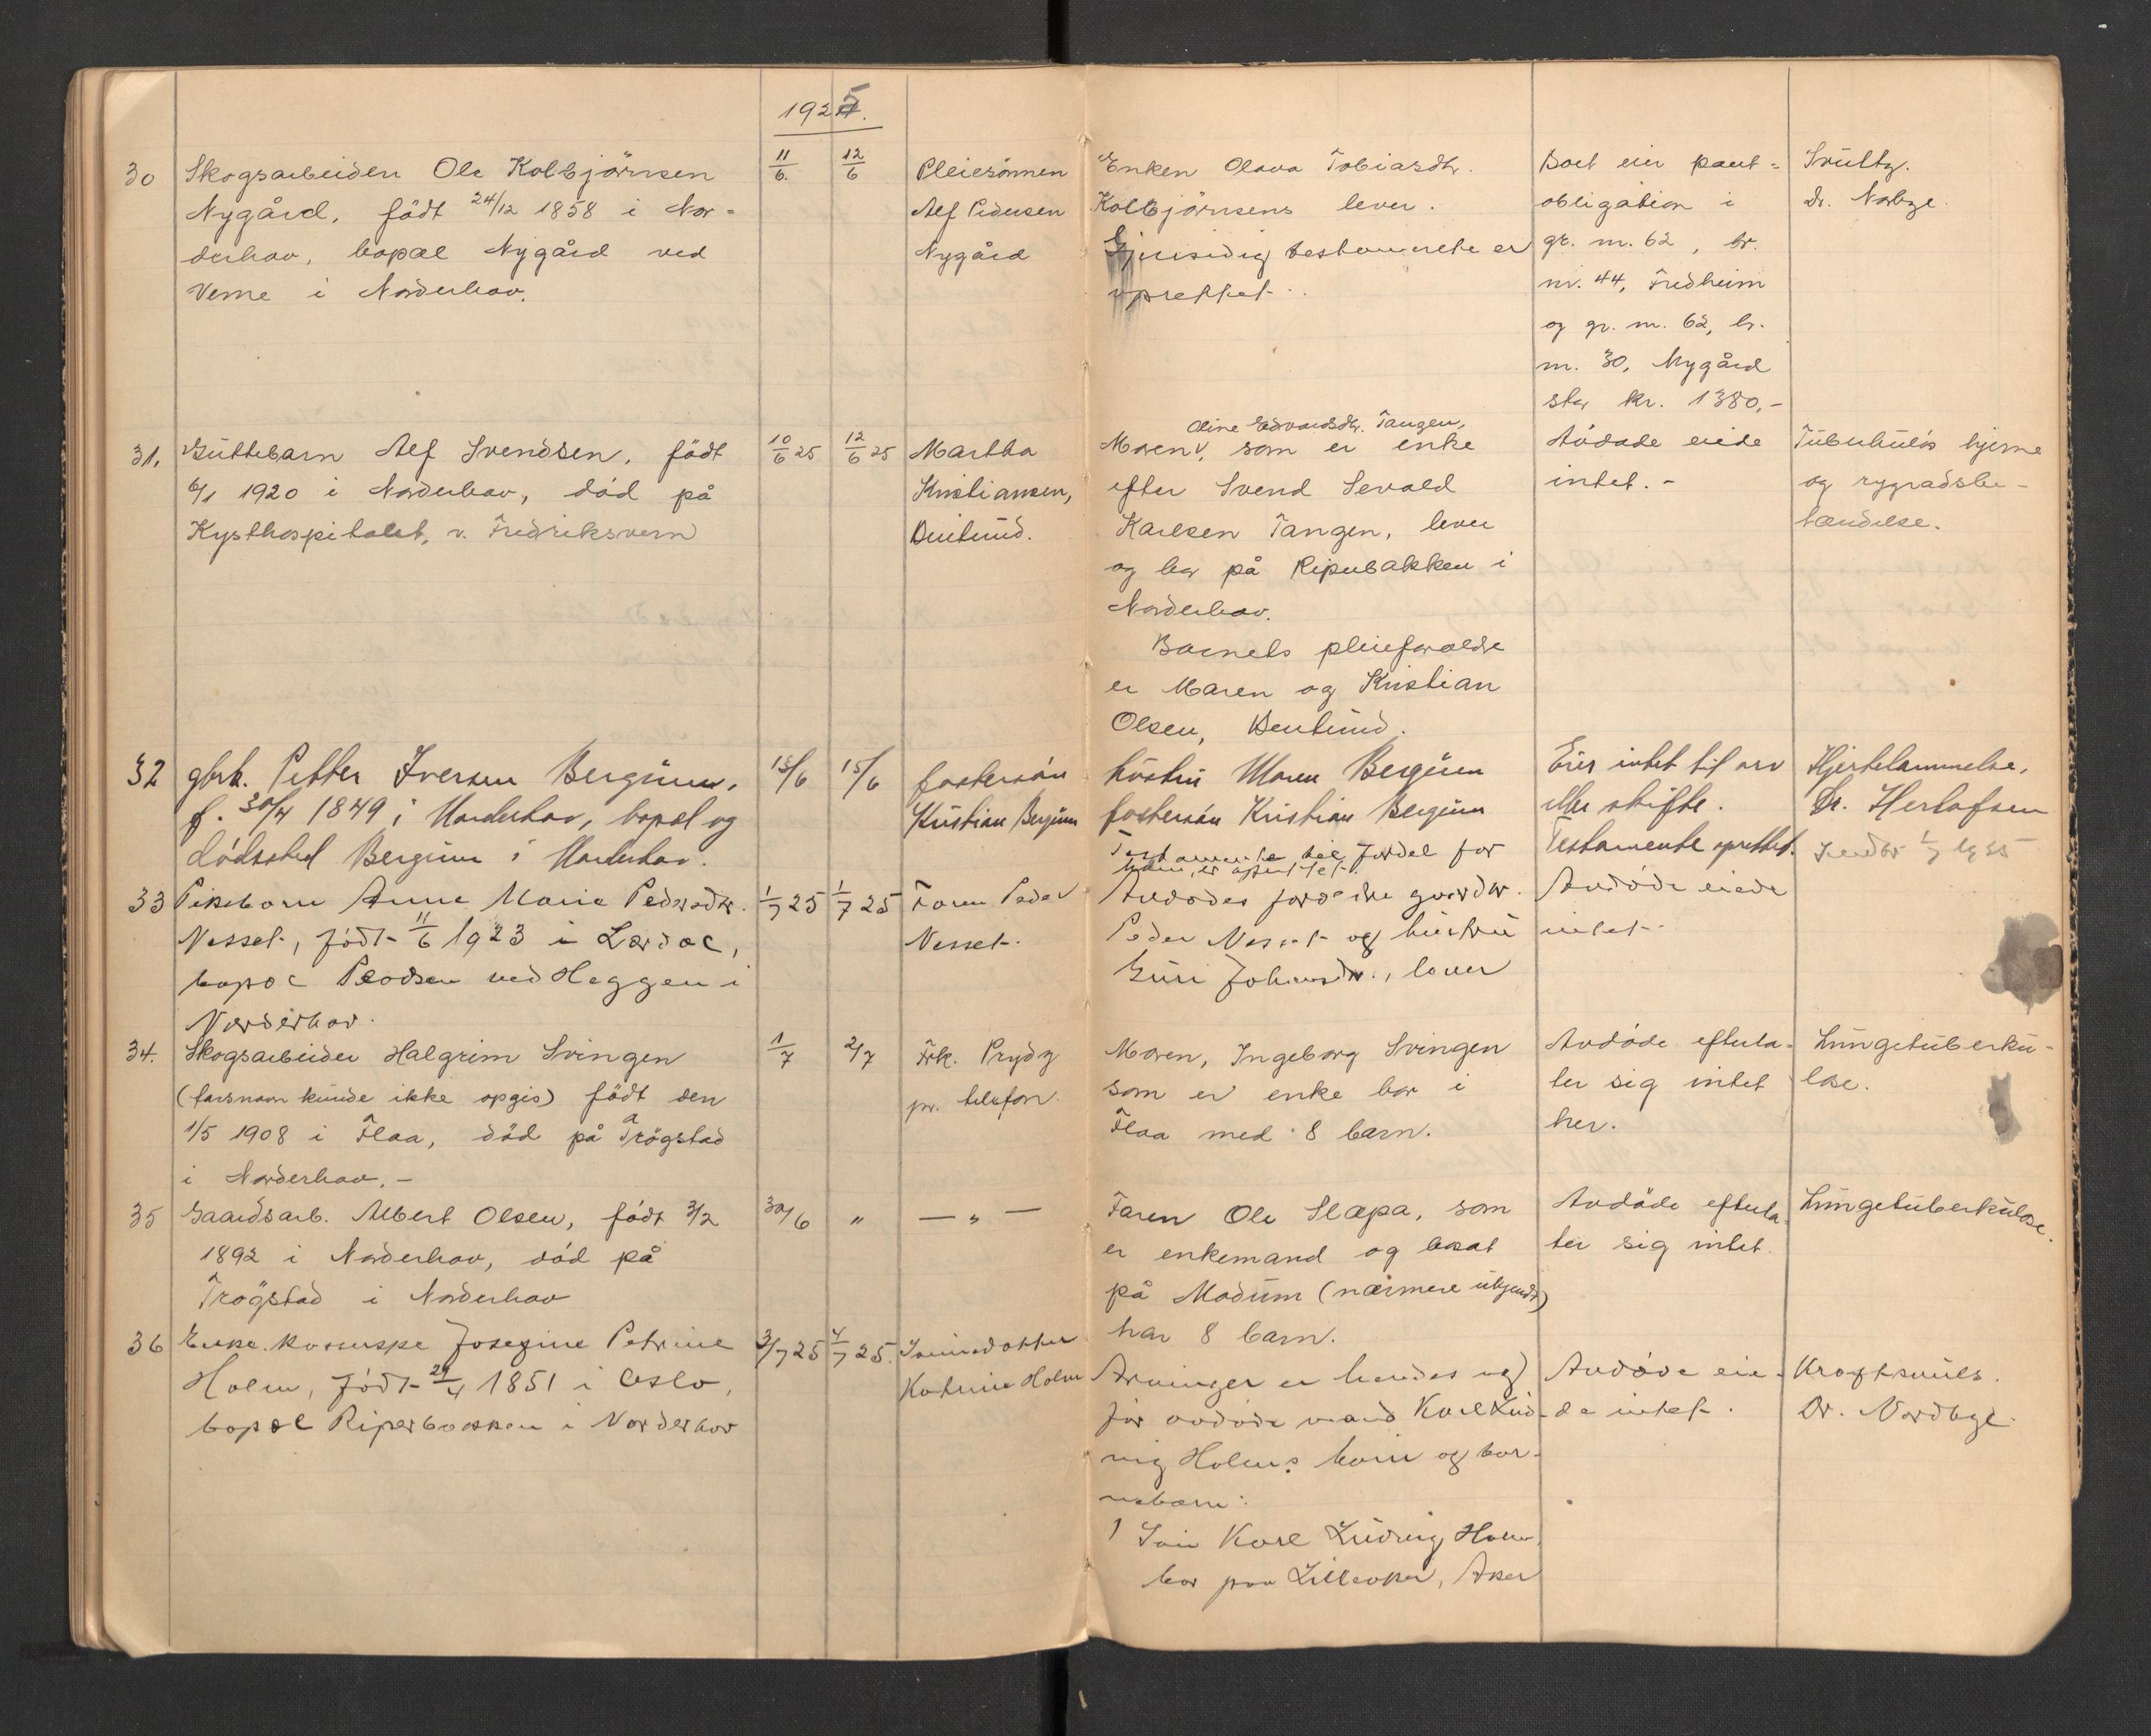 1925.
30
Skogsarbeider Ole Kolbjörnsen
Nygård, födt 24/12 1858 i Nor-
derhov, bopæl Nygård ved
Veme i Norderhov.
11/6.
12/6
Pleiesönnen
Alf Pedersen
Nygård
Enken Olava Tobiasdtr.
Kolbjörnsens lever.
Gjensidig testamente er
oprettet.
Boet eier pant-
obligation i
gr. nr. 62, br.
nr. 44, Fredheim
og gr. nr. 62, br.
nr. 30, Nygård
stor kr. 1380,-
Dr. Nordbye
31.
Guttebarn Alf Svendsen, födt
6/1 1920 i Norderhov, död på
Kysthospitalet, v. Fredriksvern
10/6 25
12/6 25
Martha
Kristiansen,
Oline Edvardsdtr. Tangen,
Moren, som er enke
efter Svend Sevald
Karlsen Tangen, lever
og bor på Riperbakken i
Norderhov.
Barnets pleieforældre
er Maren og Kristian
Olsen,
Avdöde eiede
intet.-
Tuberkulös hjerne
og rygradsbe-
tændelse.
32
gbrk. Petter Iversen Bergsund,
f. 30/4 1849 i Norderhov, bopel og
dödssted Bergsund i Norderhov.
15/6
15/6
fostersön
Kristian Bergsund
hustru Maren Bergsund
fostersön Kristian Bergsund
Testamente til fordel for
ham er oprettet.
Eier intet til arv
eller skifte.
Testamente oprettet.
Hjertelammelse.
Dr. Herlofsen
33
Pikebarn Anne Marie Pedersdtr.
Nesset, födt 11/6 1923 i Lærdal,
bopæl Plodsen ved Heggen i
Norderhov.
1/7 25
1/7 25
Faren Peder
Nesset.
Avdödes forældre gaardbr.
Peder Nesset og hustru
Guri Johansdtr., lever
Avdöde eiede
intet.
34.
Skogsarbeider Halgrim Svingen
(farsnavn kunde ikke opgis) födt den
1/5 1908 i Flaa, död på Trögstad
i Norderhov.-
1/7
2/7
Frk. Prydz
pr. telefon.
Moren, Ingeborg Svingen
som er enke bor i
Flaa med 8 barn.
Avdöde efterla-
ter sig intet
her.
Lungetuberku-
lose.
35
Gaardsarb. Albert Olsen, födt 3/2
1892 i Norderhov, död på
Trögstad i Norderhov
30/6
"
— " —
Faren Ole Slæpa, som
er enkemand og bosat
på Modum (nærmere ukjendt)
har 8 barn.
Avdöde efterla-
ter sig intet.
Lungetuberkulose.
36
Enke Josefine Petrine
Holm, födt 29/4 1851 i Oslo,
bopæl Riperbakken i Norderhov
3/7 25
4/7 25.
Sönnedatter
Katrine Holm
Arvinger er hendes og
för avdöde mand Karl Lud-
vig Holms barn og bar-
nebarn:
1 Sön Karl Ludvig Holm,
bor paa Lilleaker, Aker
Avdöde eie-
de intet.
Kræftsvulst.
Dr. Nordbye